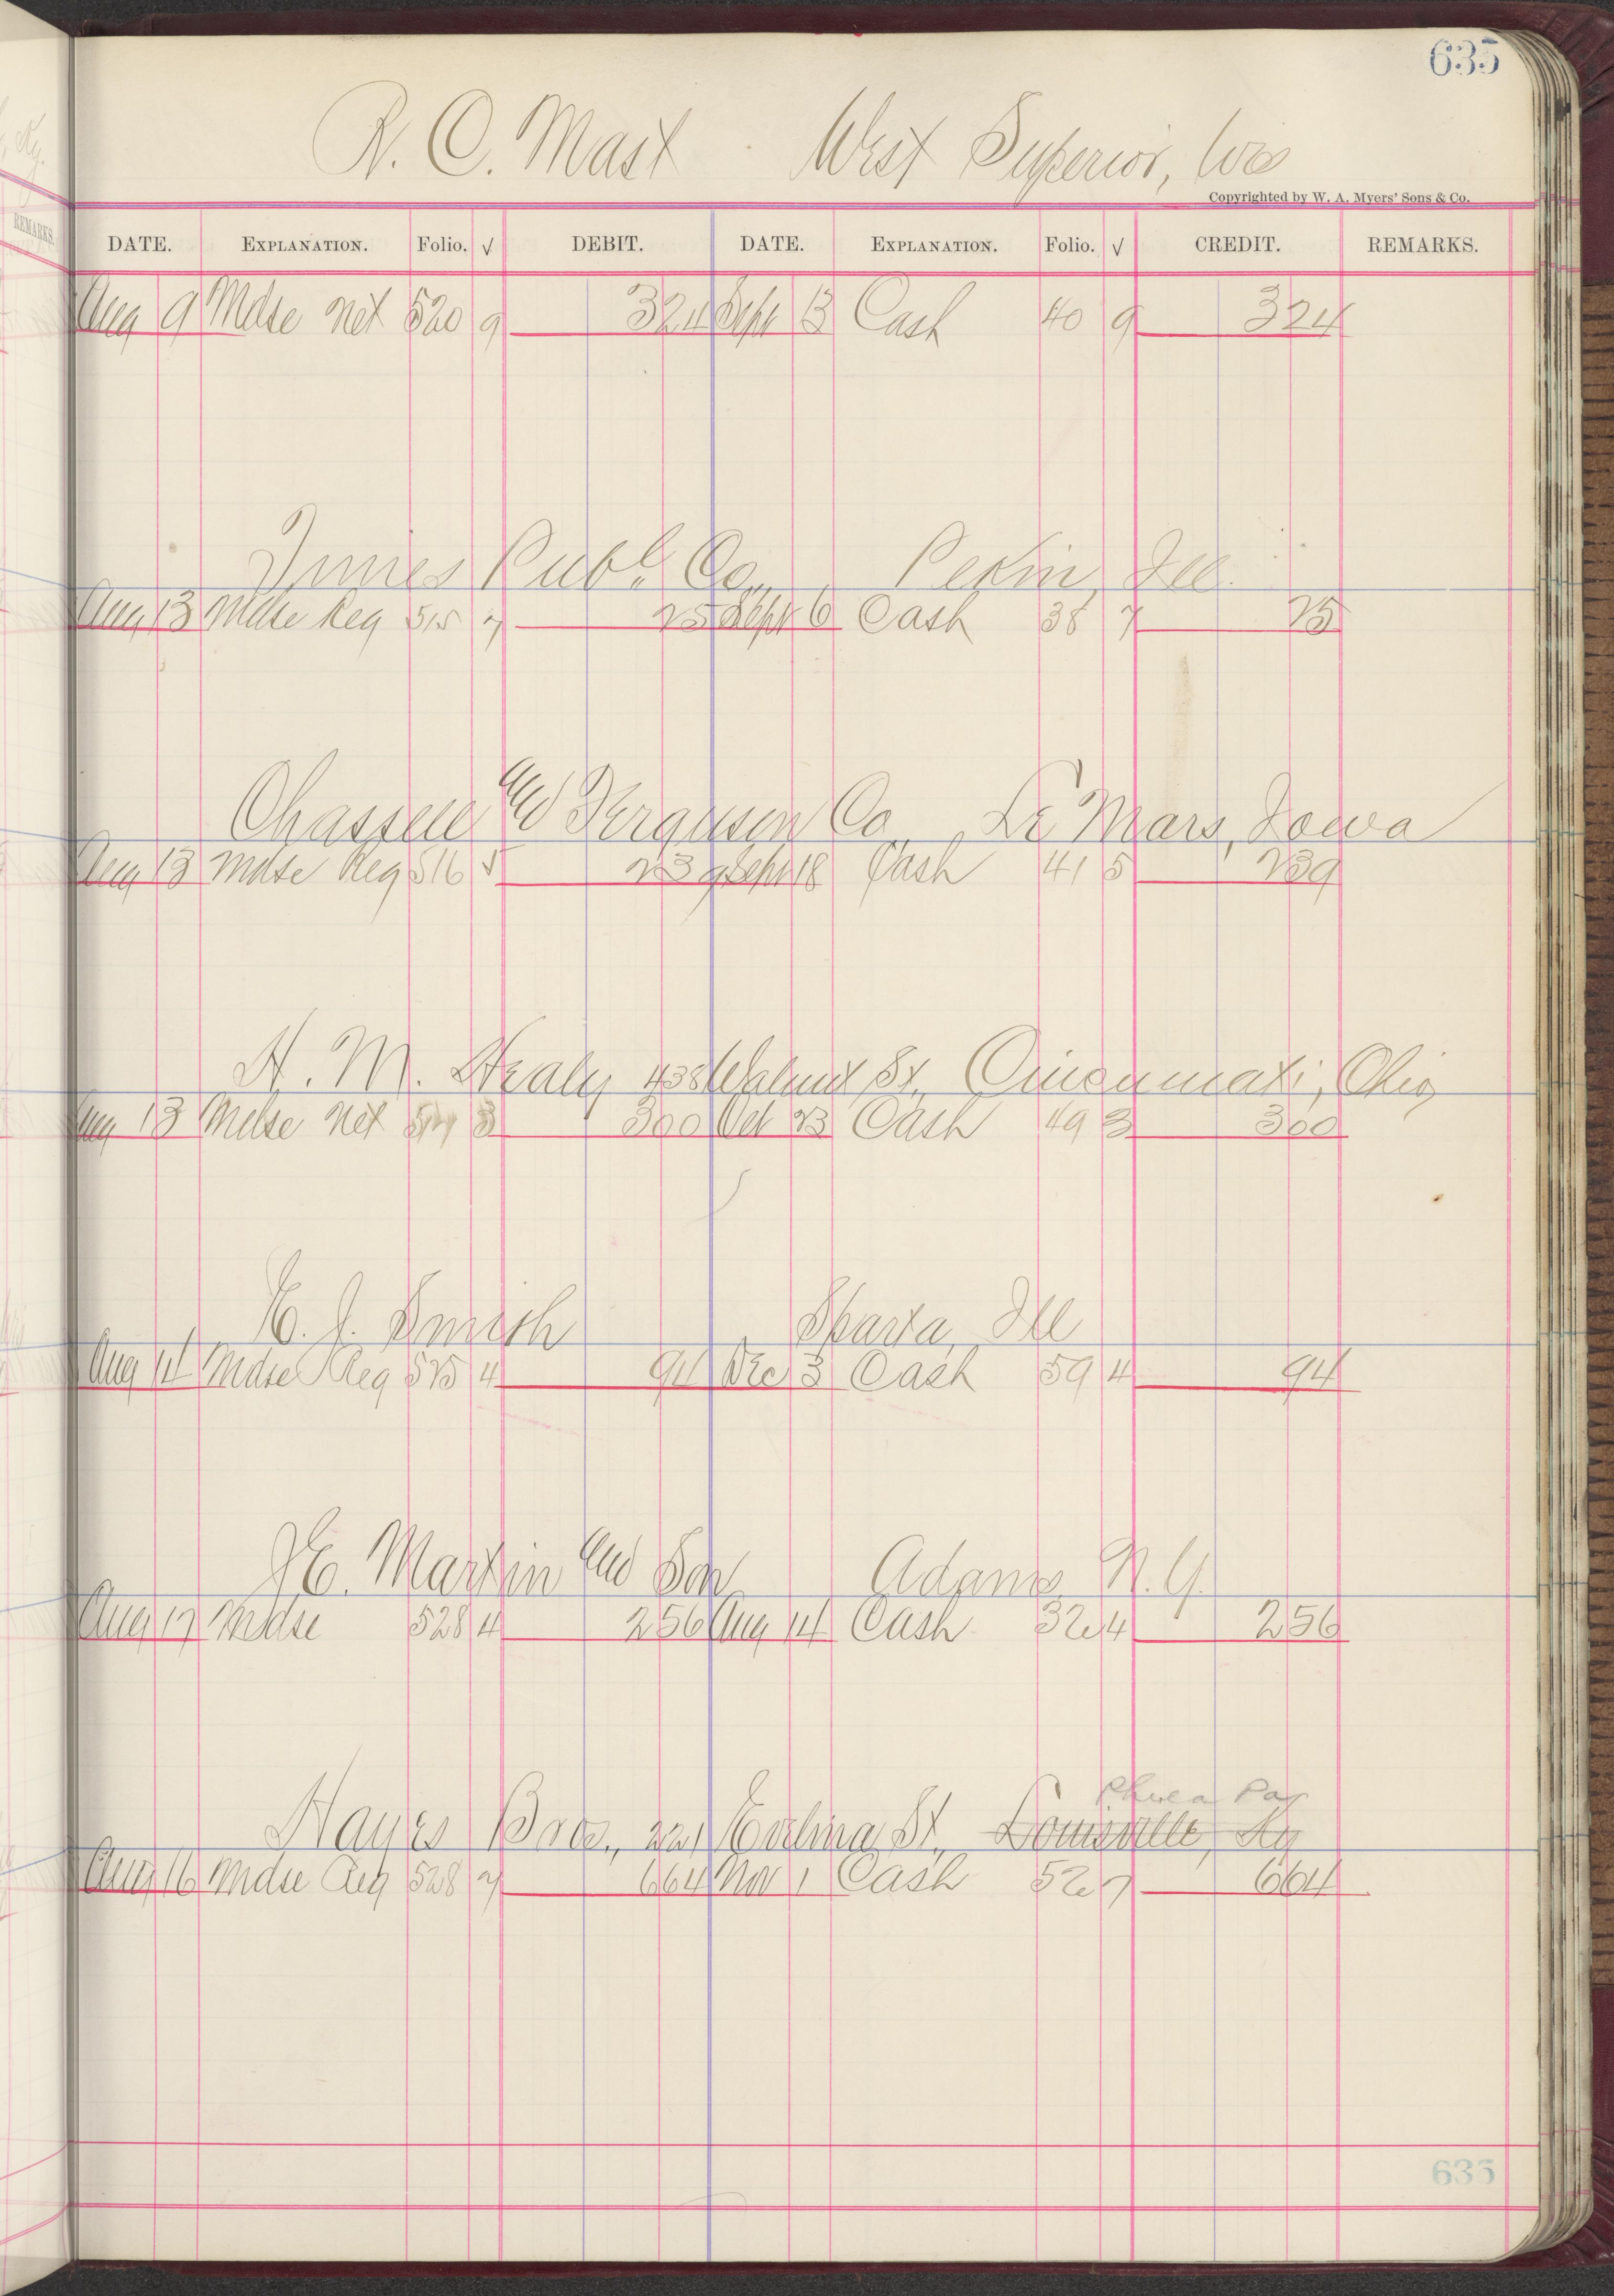 635
R. C. Mast West Superior, Wis
Copyrighted by W. A. Myers' Sons & Co.
DATE. EXPLANATION. Folio. √ DEBIT. DATE. EXPLANATION. Folio. √ CREDIT. REMARKS.
Aug 9 Mdse Net 520 9 3 24 Sept 13 Cash 40 9 3 24
Times Publ. Co., Pekin, Ill.
Aug 13 Mdse Reg 515 7 25 Sept 6 Cash 38 7 25
Chassell and Ferguson Co Le Mars, Iowa
Aug 13 Mdse Reg 516 5 2 39 Sept 18 Cash 41 5 2 39
H. M. Healy 438 Walnut St., Cincinnati, Ohio
Aug 13 Mdse Net 3 3 00 Oct 23 Cash 49 3 3 00
E. J. Smith Sparta, Ill
Aug 14 Mdse Reg 525 4 94 Dec 3 Cash 59 4 94
J E. Martin and Son Adams, N. Y.
Aug 17 Mdse 528 4 2 56 Aug 14 Cash 32 4 2 56
Phila Pa
Hayes Bros., 221 St., Louisville, Ky
Aug 16 Mdse Reg 528 7 6 64 Nov 1 Cash 52 7 6 64
635
Ky.
REMARKS.